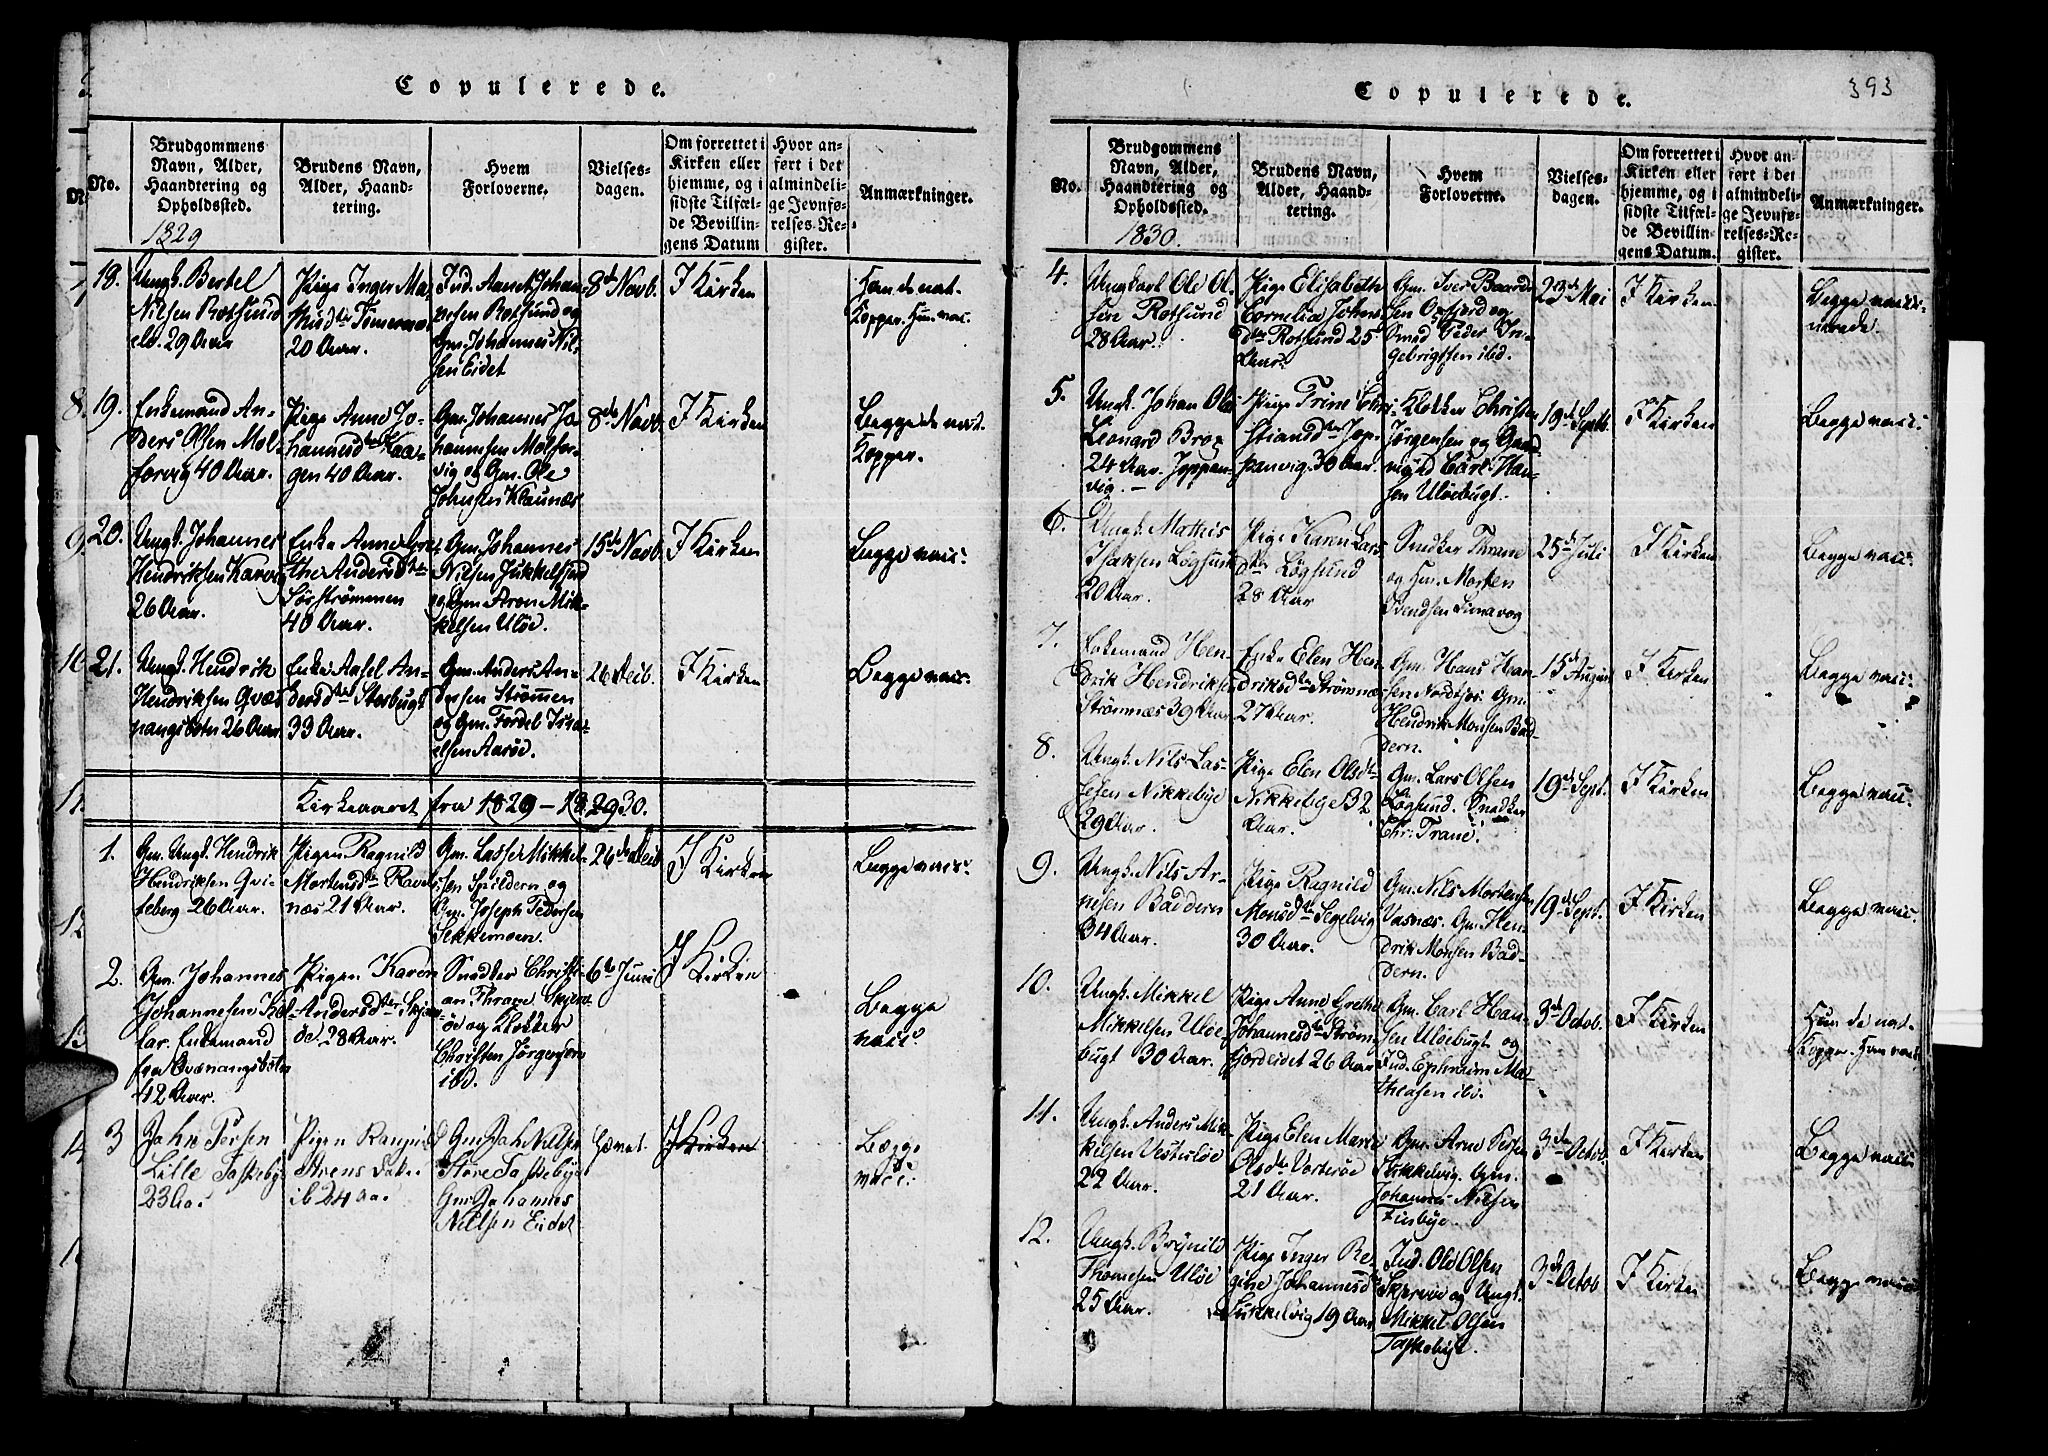 Copulerede.
No.
Brudgommens
Navn, Alder,
Haandtering og
Opholdssted.
1829
Brudens Navn,
Alder, Haand-
tering.
Hvem
Forloverne.
Vielses-
dagen.
Om forrettet i
Kirken eller
hjemme, og i
sidste Tilfæl-
de Bevillin-
gens Datum
Hvor an-
ført i det
almindeli-
ge Jevnfø-
relses-Re-
gister.
Anmærkninger.
18.
Ungk. Bertel
Nilsen Rotsund
29 Aar
Pige Inger Ma-
20 Aar.
Ind. Arnet Johan-
nesen Rotsund og
Gm. Johannes Nil-
sen Eidet
8de Novb.
I Kirken
Ham de nat.
Kopper. Hun vac.
19.
Enkemand An-
ders Olsen Mol-
forvig 40 Aar.
Pige Anne Jo-
hannesdtr Kaa-
gen 40 Aar.
Gm. Johannes Jo-
hannesen Molfor-
vig og Gm. Ole
Johnsen Klaunæs
8de Novb.
I Kirken
Begge de nat.
Kopper.
20.
Ungk. Johannes
Hendriksen Karvig
26 Aar.
Enke Anne Gre-
the Andersdtr
Sørstrømmen
40 Aar.
Gm. Johannes
Nilsen Jukkelsund
og Gm. Aron Mik-
kelsen Uløe.
15de Novb.
I Kirken
Begge vacc:
21.
Ungk. Hendrik
Hendriksen Qvæ-
nangsbotn 26 Aar
Enke Axsel An-
dersdtr Storbugt
33 Aar.
Gm. Anders An-
dersen Strømmen
og Gm. Fordel Isra-
elsen Aarøe.
26 Decb.
I Kirken
Begge vacc.
Kirkeaaret fra 1829 - 1830.
1.
Gm. Ungk. Hendrik
Hendriksen Qvi-
teberg 26 Aar.
Pigen Ragnild
Mortensdtr Ravel-
næs 21 Aar.
Gm. Lasse Mikkel-
sen Spildern og
Gm. Joseph Pedersen
Sekkemoen.
26de Decb
I Kirken
Begge vacc.
2.
Gm. Johannes
Johannesen
Enkemand
fra Qvænangsbotn
42 Aar.
Pigen Karen
Andersdtr Skjerv-
öe 28 Aar.
Snedker Christi-
an Thrane Skjerv-
öe og Klokker
Christen Jørgensen
ibd.
6te Juni
I Kirken
Begge
vacc:
3
John Persen
Lille Taskeby
23 Aa.
Pigen Rangnild
Arens Dater
ib 24 aa.
Gm Joh Nilsen
Store Taskeby
Gm Johannes
Nilsen Eidet
I Kirken
Begge
vacc.
Copulerede.
393
No.
Brudgommens
Navn, Alder,
Haandtering og
Opholdssted.
1830.
Brudens Navn,
Alder, Haand-
tering.
Hvem
Forloverne.
Vielses-
dagen.
Om forrettet i
Kirken eller
hjemme, og i
sidste Tilfæl-
de Bevillin-
gens Datum.
Hvor an-
ført i det
almindeli-
ge Jevnfø-
relses-Re-
gister.
Anmærkninger.
4.
Ungkarl Ole Ol-
sen Rotsund
28 Aar.
Pige Elisabeth
Cornelia Johns-
dtr Rotsund 25
Aar.
Gm. Iver Baard-
sen Oxfjord og
Smed Peder In-
gebrigtsen ibid.
23de Mai
I Kirken
Begge vacci-
nerede.
5.
Ungk. Johan Ole
Leonard Brox
24 Aar. Joppan-
vig.
Pige Trine Chri-
stiansdtr Jop-
panvig. 30 Aar.
Klokker Christen
Jørgensen og Gaard-
mand Carl Han-
sen Uløebugt.
19de Septb.
I Kirken
Begge vacc:
6.
Ungk. Mathis
Isaksen Løgsund
20 Aar.
Pige Karen Lars-
dtr Løgsund
28 Aar
Snedker Thrane
og Hm. Morten
25de Juli
I Kirken
Begge vacc:
7.
Enkemand Hen-
drik Hendriksen
Strømnæs 39 Aar
Enke Elen Hen-
driksdtr Strømnæs
27 Aar.
Gm. Hans Han-
sen Gm.
Hendrik Monsen Bad-
dern.
15de August
I Kirken
Begge vacc:
8.
Ungk. Nils Las-
sesen Nikkebye
29 Aar.
Pige Elen Olsdtr
Nikkebye 32
Aar.
Gm. Lars Olsen
Løgsund. Snedker
Chr. Trane.
19de Sept.
I Kirken
Begge vacc.
9.
Ungk. Nils Ar-
nesen Baddern
34 Aar.
Pige Ragnild
Monsdtr Segelvig
30 Aar.
Gm. Nils Mortensen
Vasnæs. Gm. Hen-
drik Monsen Bad-
dern.
19de Sept.
I Kirken
Begge vacc.
10.
Ungk. Mikkel
Mikkelsen Uløe-
bugt 30 Aar.
Pige Anne Grethe
Johannesdtr Strøm-
fjordeidet 26 Aar
Gm. Carl Han-
sen Uløebugt og
Ind. Ephraim Ma-
theasen ibd.
3de Octob.
I Kirken
Hun de nat.
Kopper. Ham vacc.
11.
Ungk. Anders Mik-
kelsen Vesterløe
22 Aar.
Pige Elen Marie
Olsdtr Vorterøe
21 Aar.
Gm. Arne Persen
Sikkelvig. Gm.
Johannes Nilsen
Finbye.
3de Octob.
I Kirken
Begge vacc:
12.
Ungk. Brynild
Thomesen Uløe
25 Aar.
Pige Inger Re-
gine Johannesdtr
Sukkelvig 19 Aar
Ind. Ole Olsen
Skjervöe og Ungk.
Mikkel Olsen
Taskebye.
3de Octob
I Kirken
Begge vacc